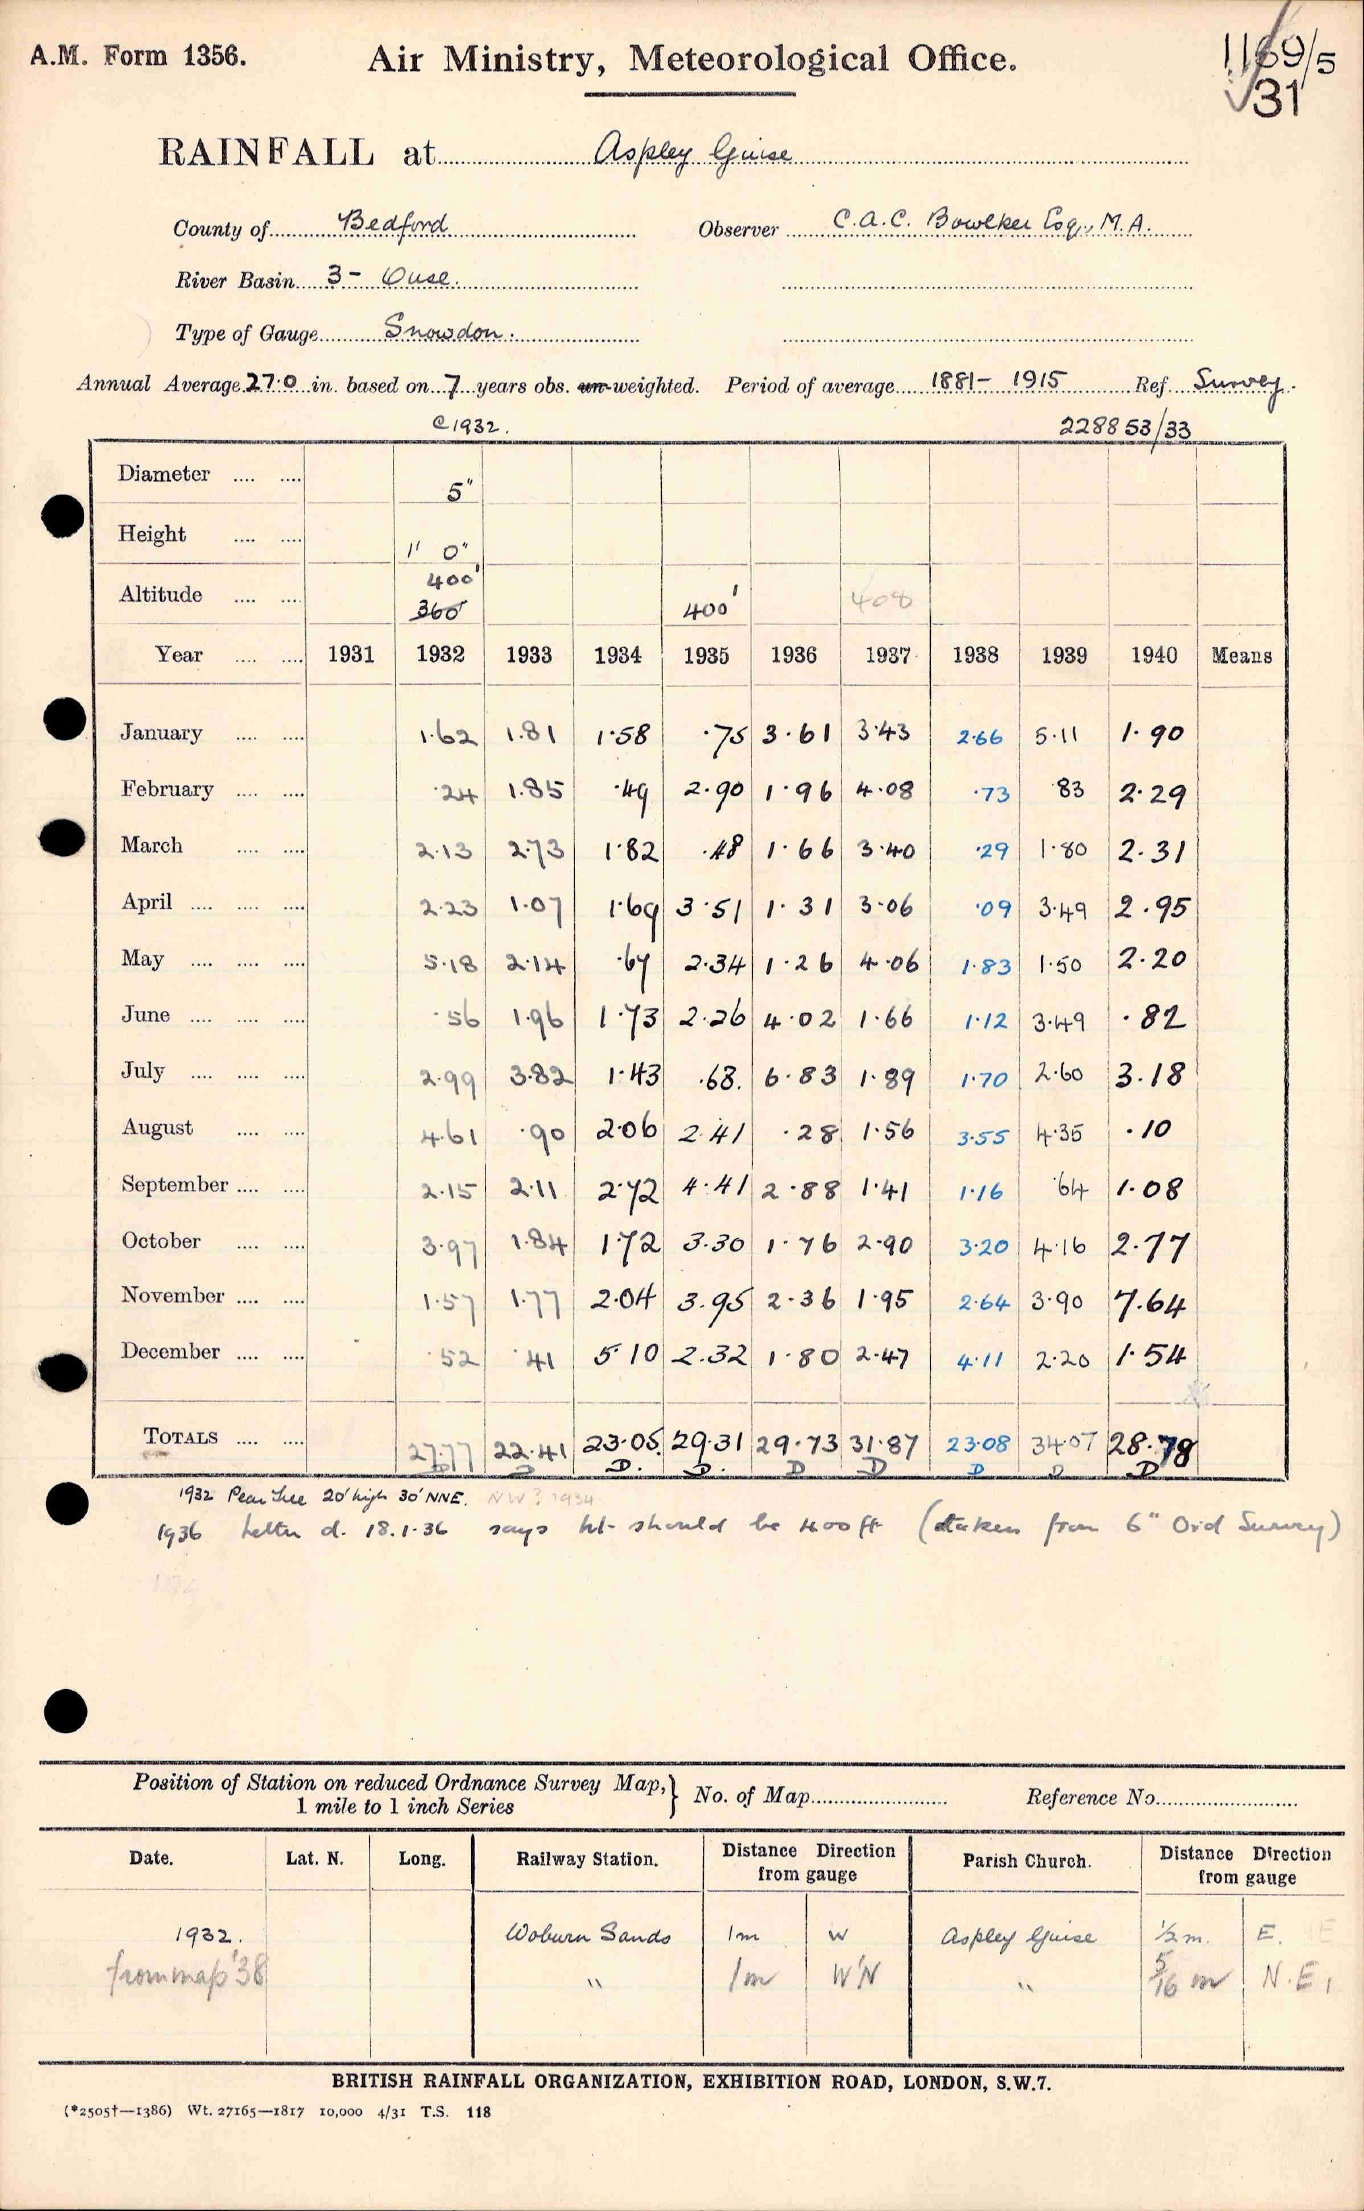 A.M. Form 1356.
Air Ministry, Meteorological Office.
1169/5
31
RAINFALL at Aspley Guise
County of Bedford Observer C.A.C. Bowlker Esq., M.A.
River Basin 3 - Ouse.
Type of Gauge Snowdon.
Annual Average 27.0 in. based on 7 years obs. un-weighted. Period of average 1881 - 1915 Ref. Survey.
C1932. 228853/33
Diameter 5"
Height 1' 0"
400'
Altitude 360' 400' 408
Year 1931 1932 1933 1934 1935 1936 1937 1938 1939 1940 Means
January 1.62 1.81 1.58 .75 3.61 3.43 2.66 5.11 1.90
February .24 1.85 .49 2.90 1.96 4.08 .73 .83 2.29
March 2.13 2.73 1.82 .48 1.66 3.40 .29 1.80 2.31
April 2.23 1.07 1.69 3.51 1.31 3.06 .09 3.49 2.95
May 5.18 2.14 .67 2.34 1.26 4.06 1.83 1.50 2.20
June .56 1.96 1.73 2.26 4.02 1.66 1.12 3.49 .82
July 2.99 3.82 1.43 .68. 6.83 1.89 1.70 2.60 3.18
August 4.61 .90 2.06 2.41 .28 1.56 3.55 4.35 .10
September 2.15 2.11 2.72 4.41 2.88 1.41 1.16 .64 1.08
October 3.97 1.84 1.72 3.30 1.76 2.90 3.20 4.16 2.77
November 1.57 1.77 2.04 3.95 2.36 1.95 2.64 3.90 7.64
December .52 .41 5.10 2.32 1.80 2.47 4.11 2.20 1.54
TOTALS 27.77 22.41 23.05. 29.31 29.73 31.87 23.08 34.07 28.78
D D D. D. D D D D D
1932 Pear Tree 20' high 30' NNE. NW? 1934
1936 letter d. 18.1.36 says ht. should be 400 ft (taken from 6" Ord Survey)
Position of Station on reduced Ordnance Survey Map, 1 mile to 1 inch Series } No. of Map Reference No.
Date. Lat. N. Long. Railway Station. Distance Direction from gauge Parish Church. Distance Direction from gauge
1932. Woburn Sands 1m W Aspley Guise ½ m. E. E
from map '38 " 1m W'N " 5/16 m N.E.
BRITISH RAINFALL ORGANIZATION, EXHIBITION ROAD, LONDON, S.W.7.
(*2505†—1386) Wt. 27165—1817 10,000 4/31 T.S. 118